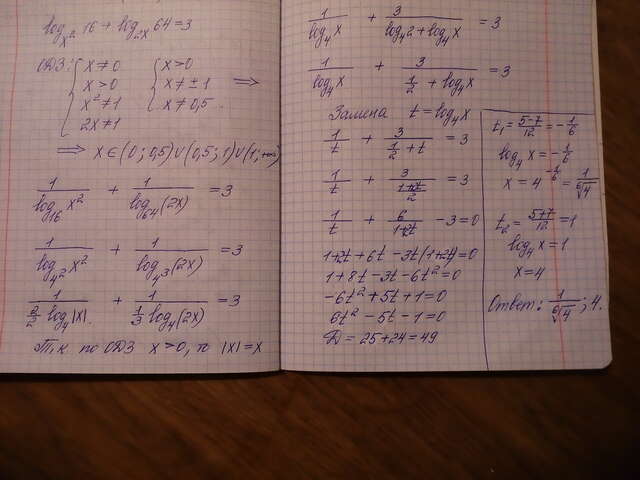 log_{x²} 16 + log_{2x} 64 = 3
ОДЗ: { x ≠ 0 { x > 0
x > 0 x ≠ ± 1 ⟹
x² ≠ 1 x ≠ 0,5.
2x ≠ 1
⟹ x ∈ (0; 0,5) ∪ (0,5; 1) ∪ (1; +∞)
1/(log₁₆ x²) + 1/(log₆₄ (2x)) = 3
1/(log_{4²} x²) + 1/(log_{4³} (2x)) = 3
1/((2/2) log₄ |x|) + 1/((1/3) log₄ (2x)) = 3
Т.к по ОДЗ x > 0, то |x| = x
1/(log₄ x) + 3/(log₄ 2 + log₄ x) = 3
1/(log₄ x) + 3/(1/2 + log₄ x) = 3
Замена t = log₄ x
1/t + 3/(1/2 + t) = 3
1/t + 3/((1+2t)/2) = 3
1/t + 6/(1+2t) - 3 = 0
1 + 2t + 6t - 3t(1 + 2t) = 0
1 + 8t - 3t - 6t² = 0
-6t² + 5t + 1 = 0
6t² - 5t - 1 = 0
D = 25 + 24 = 49
t₁ = (5-7)/12 = -1/6
log₄ x = -1/6
x = 4^{-1/6} = 1/⁶√4
t₂ = (5+7)/12 = 1
log₄ x = 1
x = 4
Ответ: 1/⁶√4 ; 4.